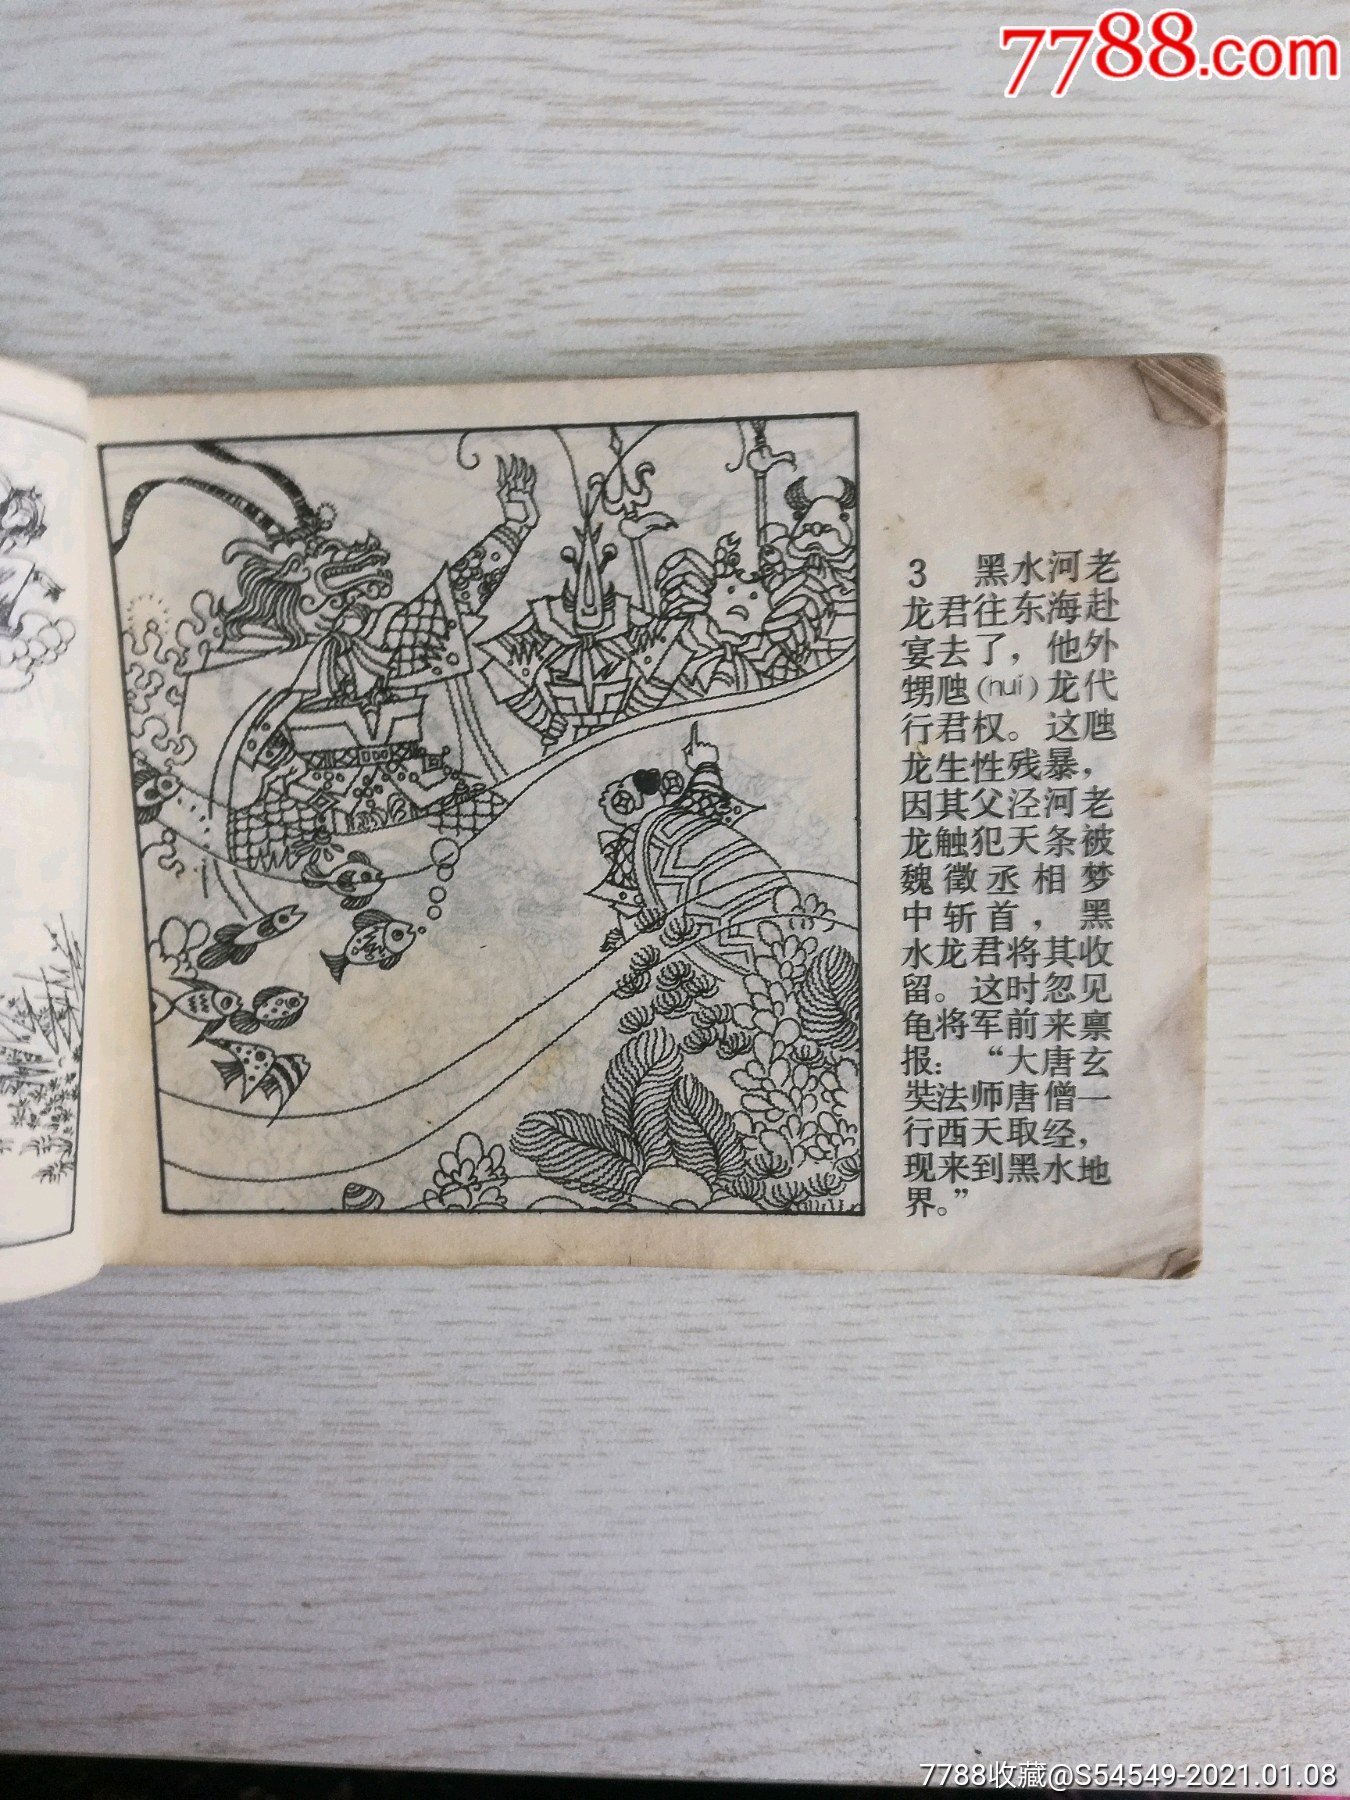 7788.com
3 黑水河老
龙君往东海赴
宴去了，他外
甥虺(huǐ)龙代
行君权。这虺
龙生性残暴，
因其父泾河老
龙触犯天条被
魏徵丞相梦
中斩首，黑
水龙君将其收
留。这时忽见
龟将军前来禀
报：“大唐玄
奘法师唐僧一
行西天取经，
现来到黑水地
界。”
7788收藏@S54549-2021.01.08